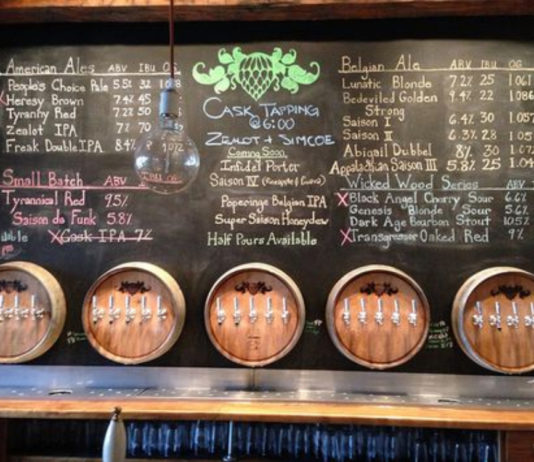 American Ales ABV IBU OG
People's Choice Pale 5.5% 32
Heresy Brown 7.4% 45
Tyranny Red 7.2% 50
Zealot IPA 7% 70
Freak Double IPA 8.4%
Small Batch ABV IBU OG
Tyrannical Red 9.5%
Saison de Funk 5.8%
Cask IPA 7%
Cask Tapping
@ 6:00
Zealot + Simcoe
Coming Soon
Infidel Porter
Saison IV
Poperinge Belgian IPA
Super Saison Honeydew
Half Pours Available
Belgian Ale ABV IBU OG
Lunatic Blonde 7.2% 25 1.061
Bedeviled Golden 9.4% 22 1.086
Strong
Saison I 6.4% 30 1.057
Saison II 6.3% 28
Abigail Dubbel 8% 30
Appalachian Saison III 5.8% 25
Wicked Wood Series ABV
Black Angel Cherry Sour 6.6%
Genesis Blonde Sour 5.6%
Dark Age Bourbon Stout 10.5%
Transgressor Oaked Red 9%